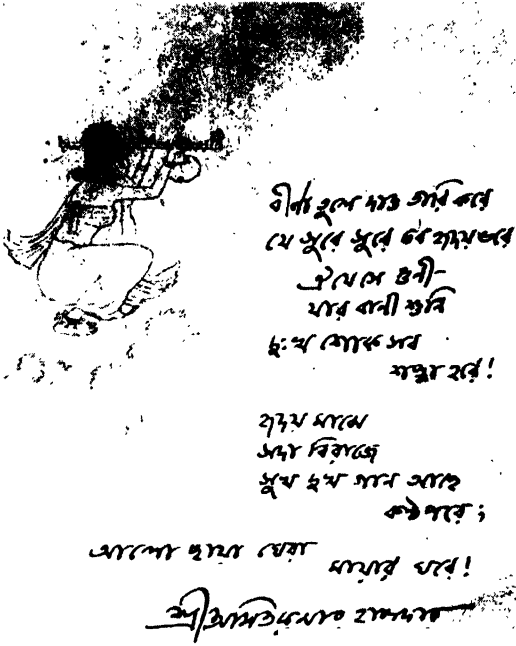 বীণা তুলে দাও তারি করে
যে সুরে সুরে তব হৃদয় ভরে
ঐ যে সে গুনী—
যার বানী শুনি
দুঃখ শোক সব
শঙ্কা হরে!
হৃদয় মাঝে
সদা বিরাজে
সুখ দুখ গান আছে
কণ্ঠ পরে;
আলো ছায়া ঘেরা
মায়ার ঘরে!
শ্রীঅসিতকুমার হালদার